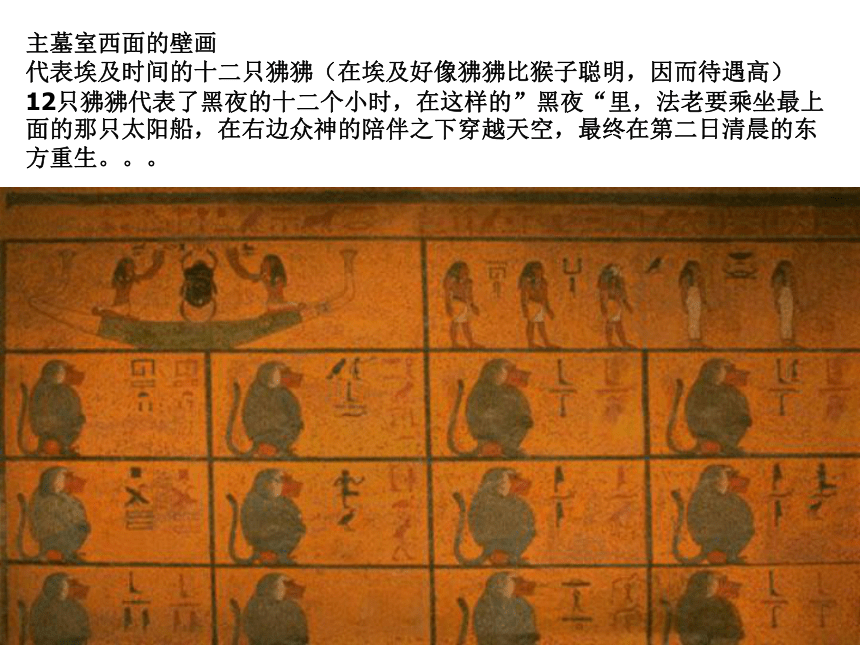 主墓室西面的壁画
代表埃及时间的十二只狒狒（在埃及好像狒狒比猴子聪明，因而待遇高）
12只狒狒代表了黑夜的十二个小时，在这样的”黑夜“里，法老要乘坐最上
面的那只太阳船，在右边众神的陪伴之下穿越天空，最终在第二日清晨的东
方重生。。。